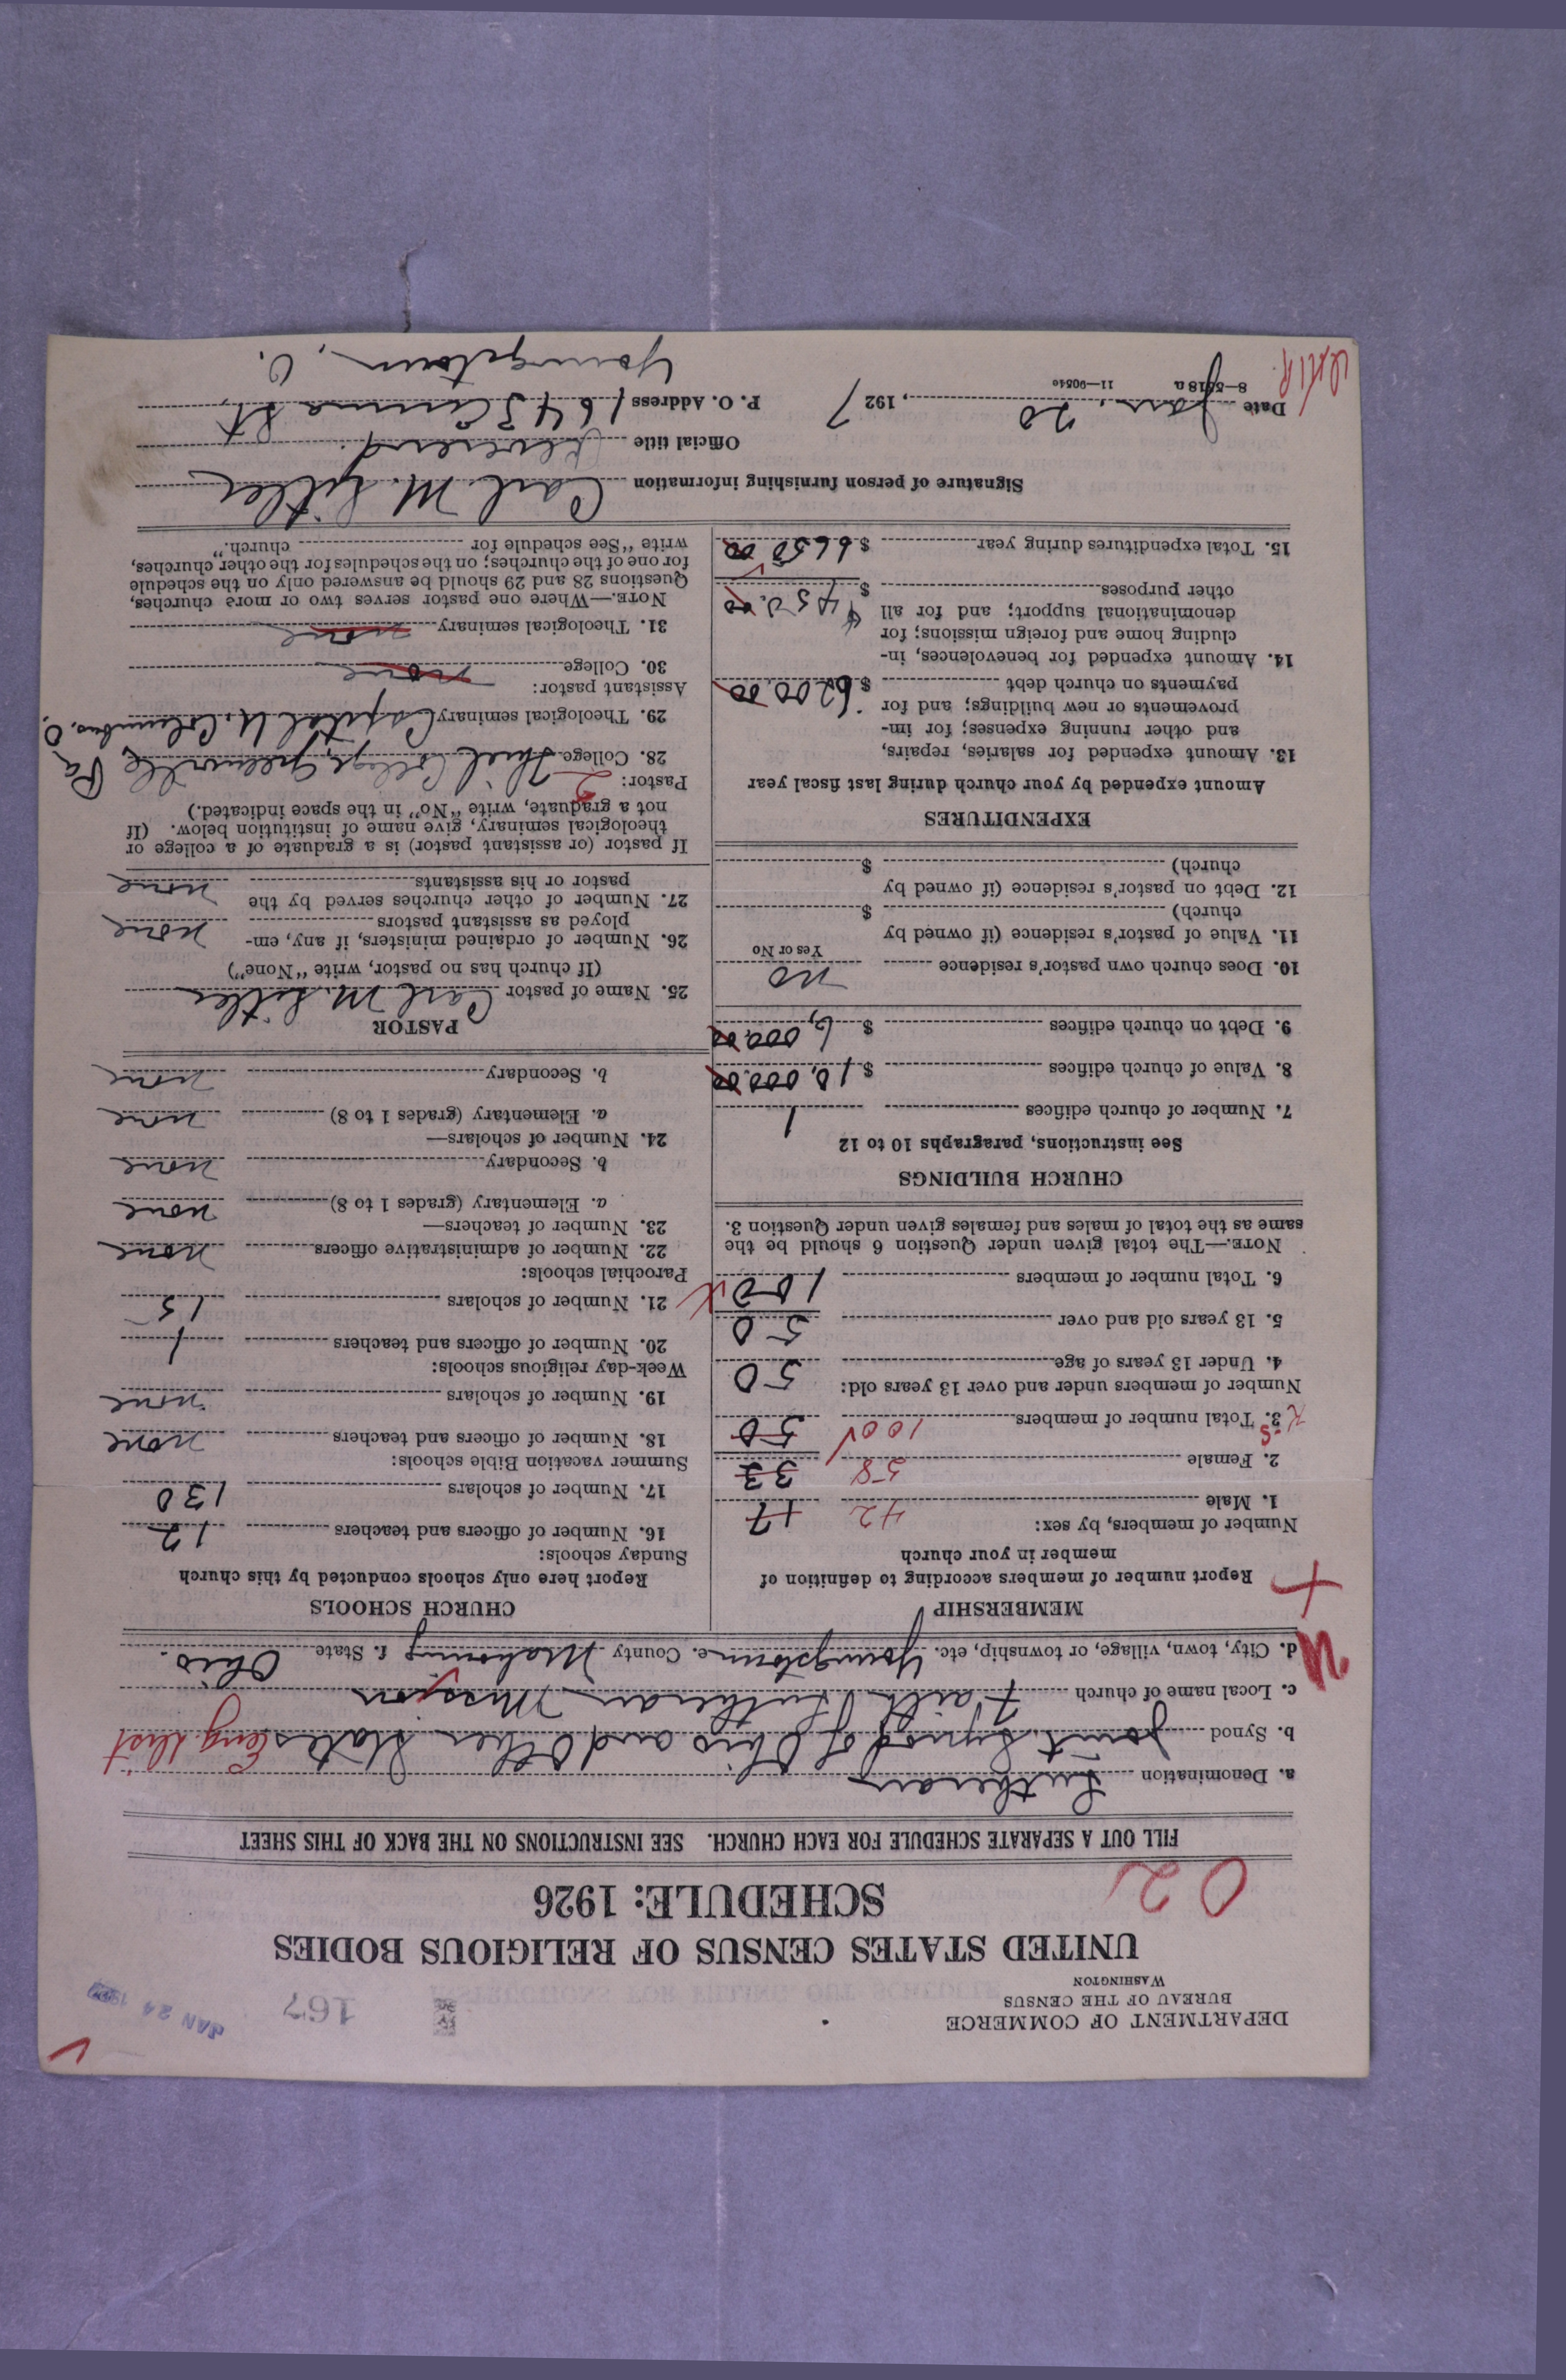 DEPARTMENT OF COMMERCE
BUREAU OF THE CENSUS
WASHINGTON
167
JAN 24 1927
UNITED STATES CENSUS OF RELIGIOUS BODIES
SCHEDULE: 1926
02
FILL OUT A SEPARATE SCHEDULE FOR EACH CHURCH. SEE INSTRUCTIONS ON THE BACK OF THIS SHEET
a. Denomination Lutheran
b. Synod Joint Synod of Ohio and Other States Eng Dist
c. Local name of church Faith Lutheran Mission
d. City, town, village, or township, etc. Youngstown e. County Mahoning f. State Ohio.
MEMBERSHIP
Report number of members according to definition of
member in your church
Number of members, by sex:
1. Male 42 17
2. Female 58 33
3. Total number of members 100 50
Number of members under and over 13 years old:
4. Under 13 years of age 50
5. 13 years old and over 50
6. Total number of members 100
NOTE.—The total given under Question 6 should be the
same as the total of males and females given under Question 3.
CHURCH BUILDINGS
See instructions, paragraphs 10 to 12
7. Number of church edifices 1
8. Value of church edifices $ 10,000.00
9. Debt on church edifices $ 6,000.00
10. Does church own pastor's residence no
Yes or No
11. Value of pastor's residence (if owned by
church) $
12. Debt on pastor's residence (if owned by
church) $
EXPENDITURES
Amount expended by your church during last fiscal year
13. Amount expended for salaries, repairs,
and other running expenses; for im-
provements or new buildings; and for
payments on church debt $ 6200.00
14. Amount expended for benevolences, in-
cluding home and foreign missions; for
denominational support; and for all
other purposes $ 450.00
15. Total expenditures during year $ 6650.00
CHURCH SCHOOLS
Report here only schools conducted by this church
Sunday schools:
16. Number of officers and teachers 12
17. Number of scholars 130
Summer vacation Bible schools:
18. Number of officers and teachers none
19. Number of scholars none
Week-day religious schools:
20. Number of officers and teachers 1
21. Number of scholars 15
Parochial schools:
22. Number of administrative officers none
23. Number of teachers—
a. Elementary (grades 1 to 8) none
b. Secondary none
24. Number of scholars—
a. Elementary (grades 1 to 8) none
b. Secondary none
PASTOR
25. Name of pastor Carl M. Sitler
(If church has no pastor, write "None")
26. Number of ordained ministers, if any, em-
ployed as assistant pastors none
27. Number of other churches served by the
pastor or his assistants none
If pastor (or assistant pastor) is a graduate of a college or
theological seminary, give name of institution below. (If
not a graduate, write "No" in the space indicated.)
Pastor: 2
28. College Thiel College, Greenville, Pa
29. Theological seminary Capital U. Columbus, O.
Assistant pastor:
30. College none
31. Theological seminary none
NOTE.—Where one pastor serves two or more churches,
Questions 28 and 29 should be answered only on the schedule
for one of the churches; on the schedules for the other churches,
write "See schedule for church."
Signature of person furnishing information Carl M. Sitler
Official title Reverend
Date Jan. 20, 1927 P. O. Address 1643 St.
8—5518a 11—9054e
Youngstown, O.